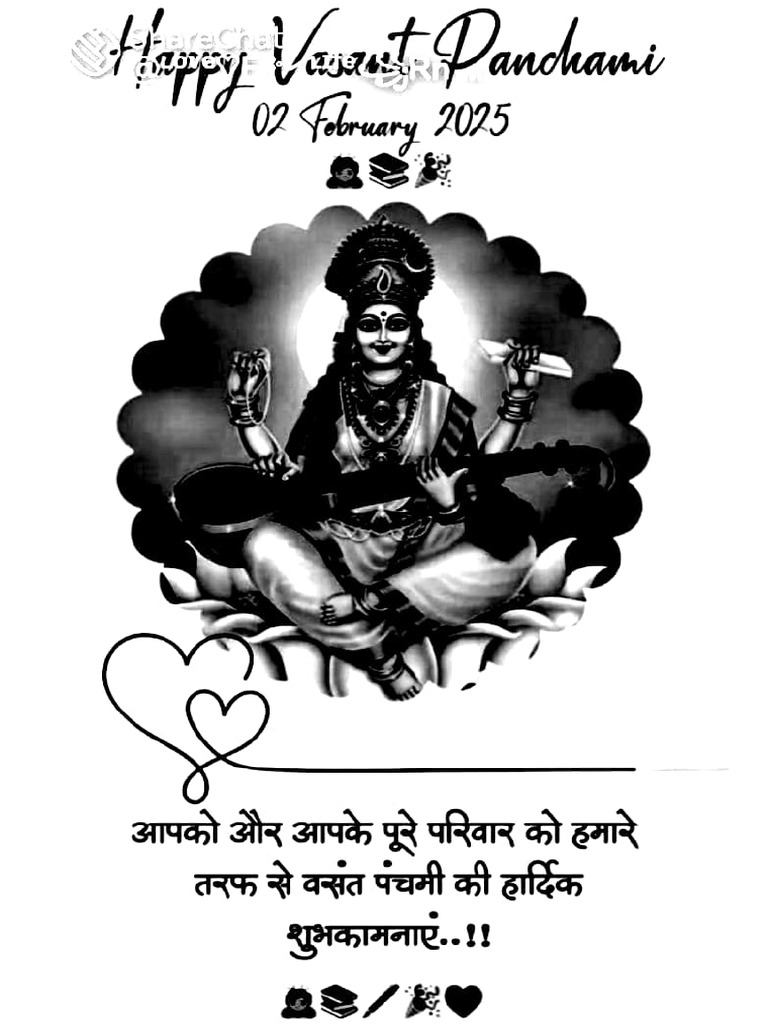 ShareChat
Happy Vasant Panchami
02 February 2025
आपको और आपके पूरे परिवार को हमारे
तरफ से वसंत पंचमी की हार्दिक
शुभकामनाएं..!!